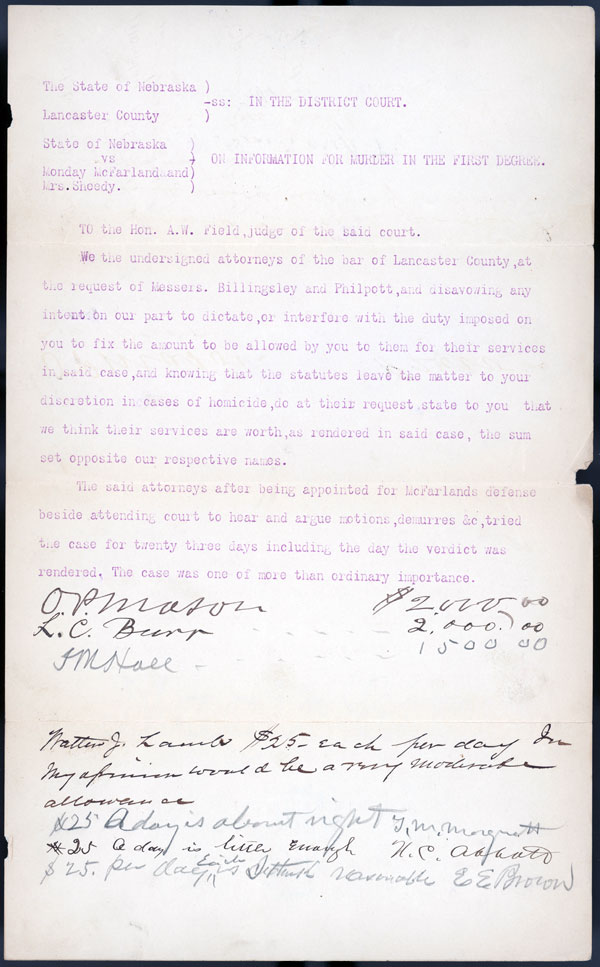 The State of Nebraska )
-ss: IN THE DISTRICT COURT.
Lancaster County )
State of Nebraska )
vs ) ON INFORMATION FOR MURDER IN THE FIRST DEGREE.
Monday McFarland and)
Mrs. Sheedy. )
TO the Hon. A.W. Field,judge of the said court.
We the undersigned attorneys of the bar of Lancaster County,at
the request of Messers. Billingsley and Philpott,and disavowing any
intention our part to dictate,or interfere with the duty imposed on
you to fix the amount to be allowed by you to them for their services
in said case,and knowing that the statutes leave the matter to your
discretion in cases of homicide,do at their request state to you that
we think their services are worth,as rendered in said case, the sum
set opposite our respective names.
The said attorneys after being appointed for McFarlands defense
beside attending court to hear and argue motions,demurres &c,tried
the case for twenty three days including the day the verdict was
rendered. The case was one of more than ordinary importance.
O.P. Mason $2,000 00
L. C. Burr - - - - 2.000. 00
F M Hall - 1500 00
Walter J. Lamb $25- each per day In
my opinion would be a very moderate
allowance
$25 a day is about right T. M. Marquett
$25 a day is little enough N. C. Abbott
$25. per day Each is I think reasonable E E Brown